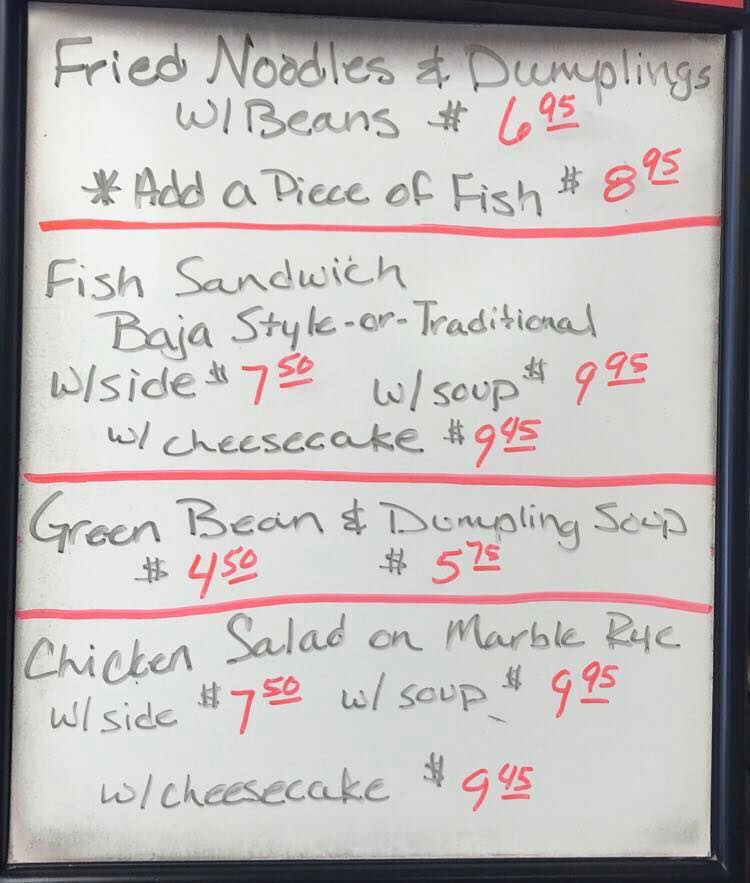 Fried Noodles & Dumplings
w/Beans $ 6.95
* Add a Piece of Fish $ 8.95
Fish Sandwich
Baja Style-or-Traditional
w/side $ 7.50 w/soup $ 9.95
w/cheesecake $ 9.45
Green Bean & Dumpling Soup
$ 4.50 $ 5.75
Chicken Salad on Marble Rye
w/side $ 7.50 w/soup $ 9.95
w/cheesecake $ 9.45